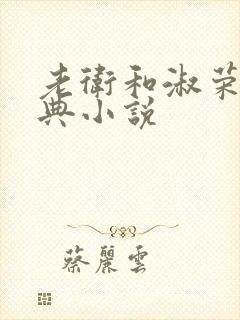 老衛和淑荣
典小說
蔡麗雲